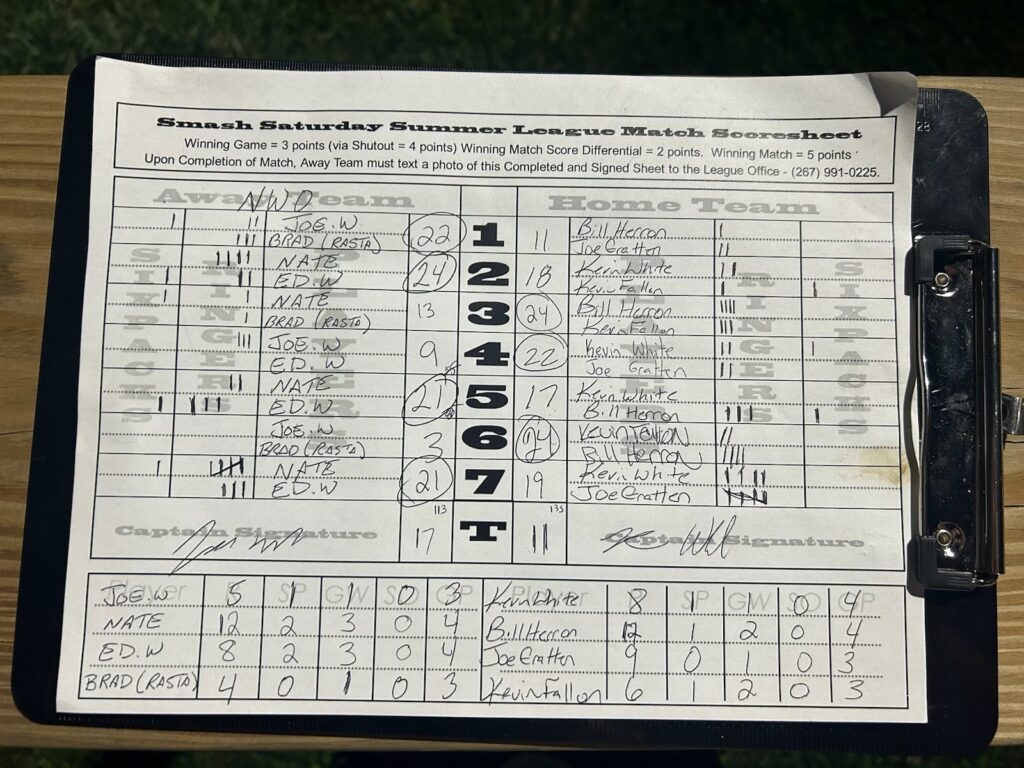 Smash Saturday Summer League Match Scoresheet
Winning Game = 3 points (via Shutout = 4 points) Winning Match Score Differential = 2 points. Winning Match = 5 points
Upon Completion of Match, Away Team must text a photo of this Completed and Signed Sheet to the League Office - (267) 991-0225.
Away Team NWO Home Team
SIXPACKS RINGERS PLAYER PLAYER RINGERS SIXPACKS
JOE.W 22 1 11 Bill Herron
BRAD (RASTA) Joe Gratten
NATE 24 2 18 Kevin White
ED.W Kevin Fallon
NATE 13 3 24 Bill Herron
BRAD (RASTA) Kevin Fallon
JOE.W 9 4 22 Kevin White
ED.W Joe Gratten
NATE 21 5 17 Kevin White
ED.W Bill Herron
JOE.W 3 6 24 Kevin Fallon
BRAD (RASTA) Bill Herron
NATE 21 7 19 Kevin White
ED.W Joe Gratten
113 135
Captain Signature 17 T 11 Captain Signature
Player SP GW SO GP Player SP GW SO GP
JOE.W 5 1 1 0 3 Kevin White 8 1 1 0 4
NATE 12 2 3 0 4 Bill Herron 12 1 2 0 4
ED.W 8 2 3 0 4 Joe Gratten 9 0 1 0 3
BRAD (RASTA) 4 0 1 0 3 Kevin Fallon 6 1 2 0 3